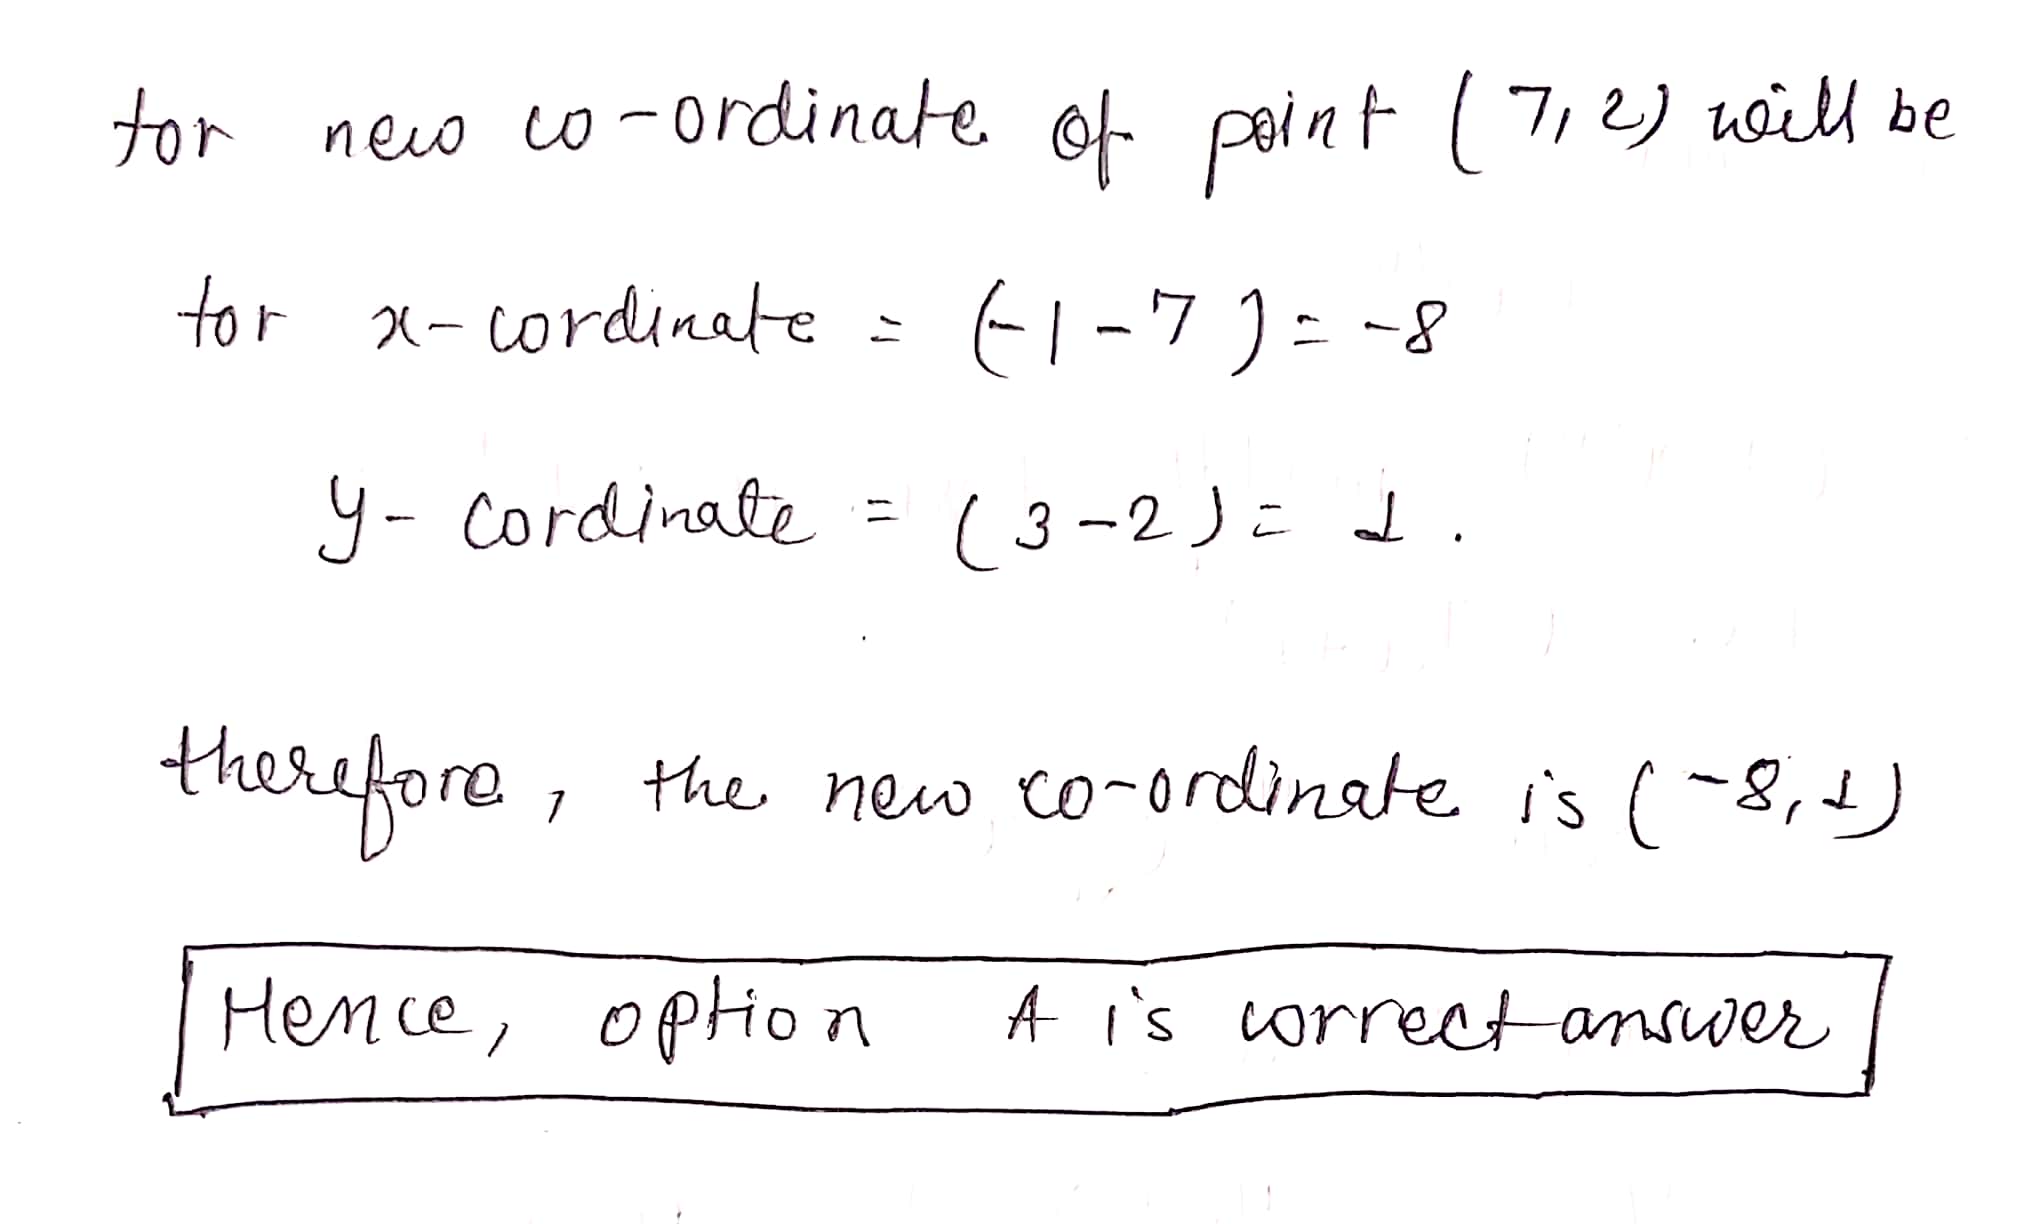 for new co-ordinate of point (7,2) will be
for x-cordinate = (-1-7) = -8
y-cordinate = (3-2) = 1.
therefore, the new co-ordinate is (-8,1)
Hence, option A is correct answer